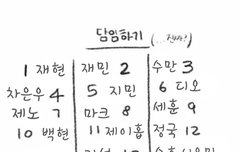 담임하기 (...진짜?)
1 재현 재민 2 수만 3
차은우 4 5 지민 6 디오
제노 7 마크 8 세훈 9
10 백현 11 제이홉 정국 12